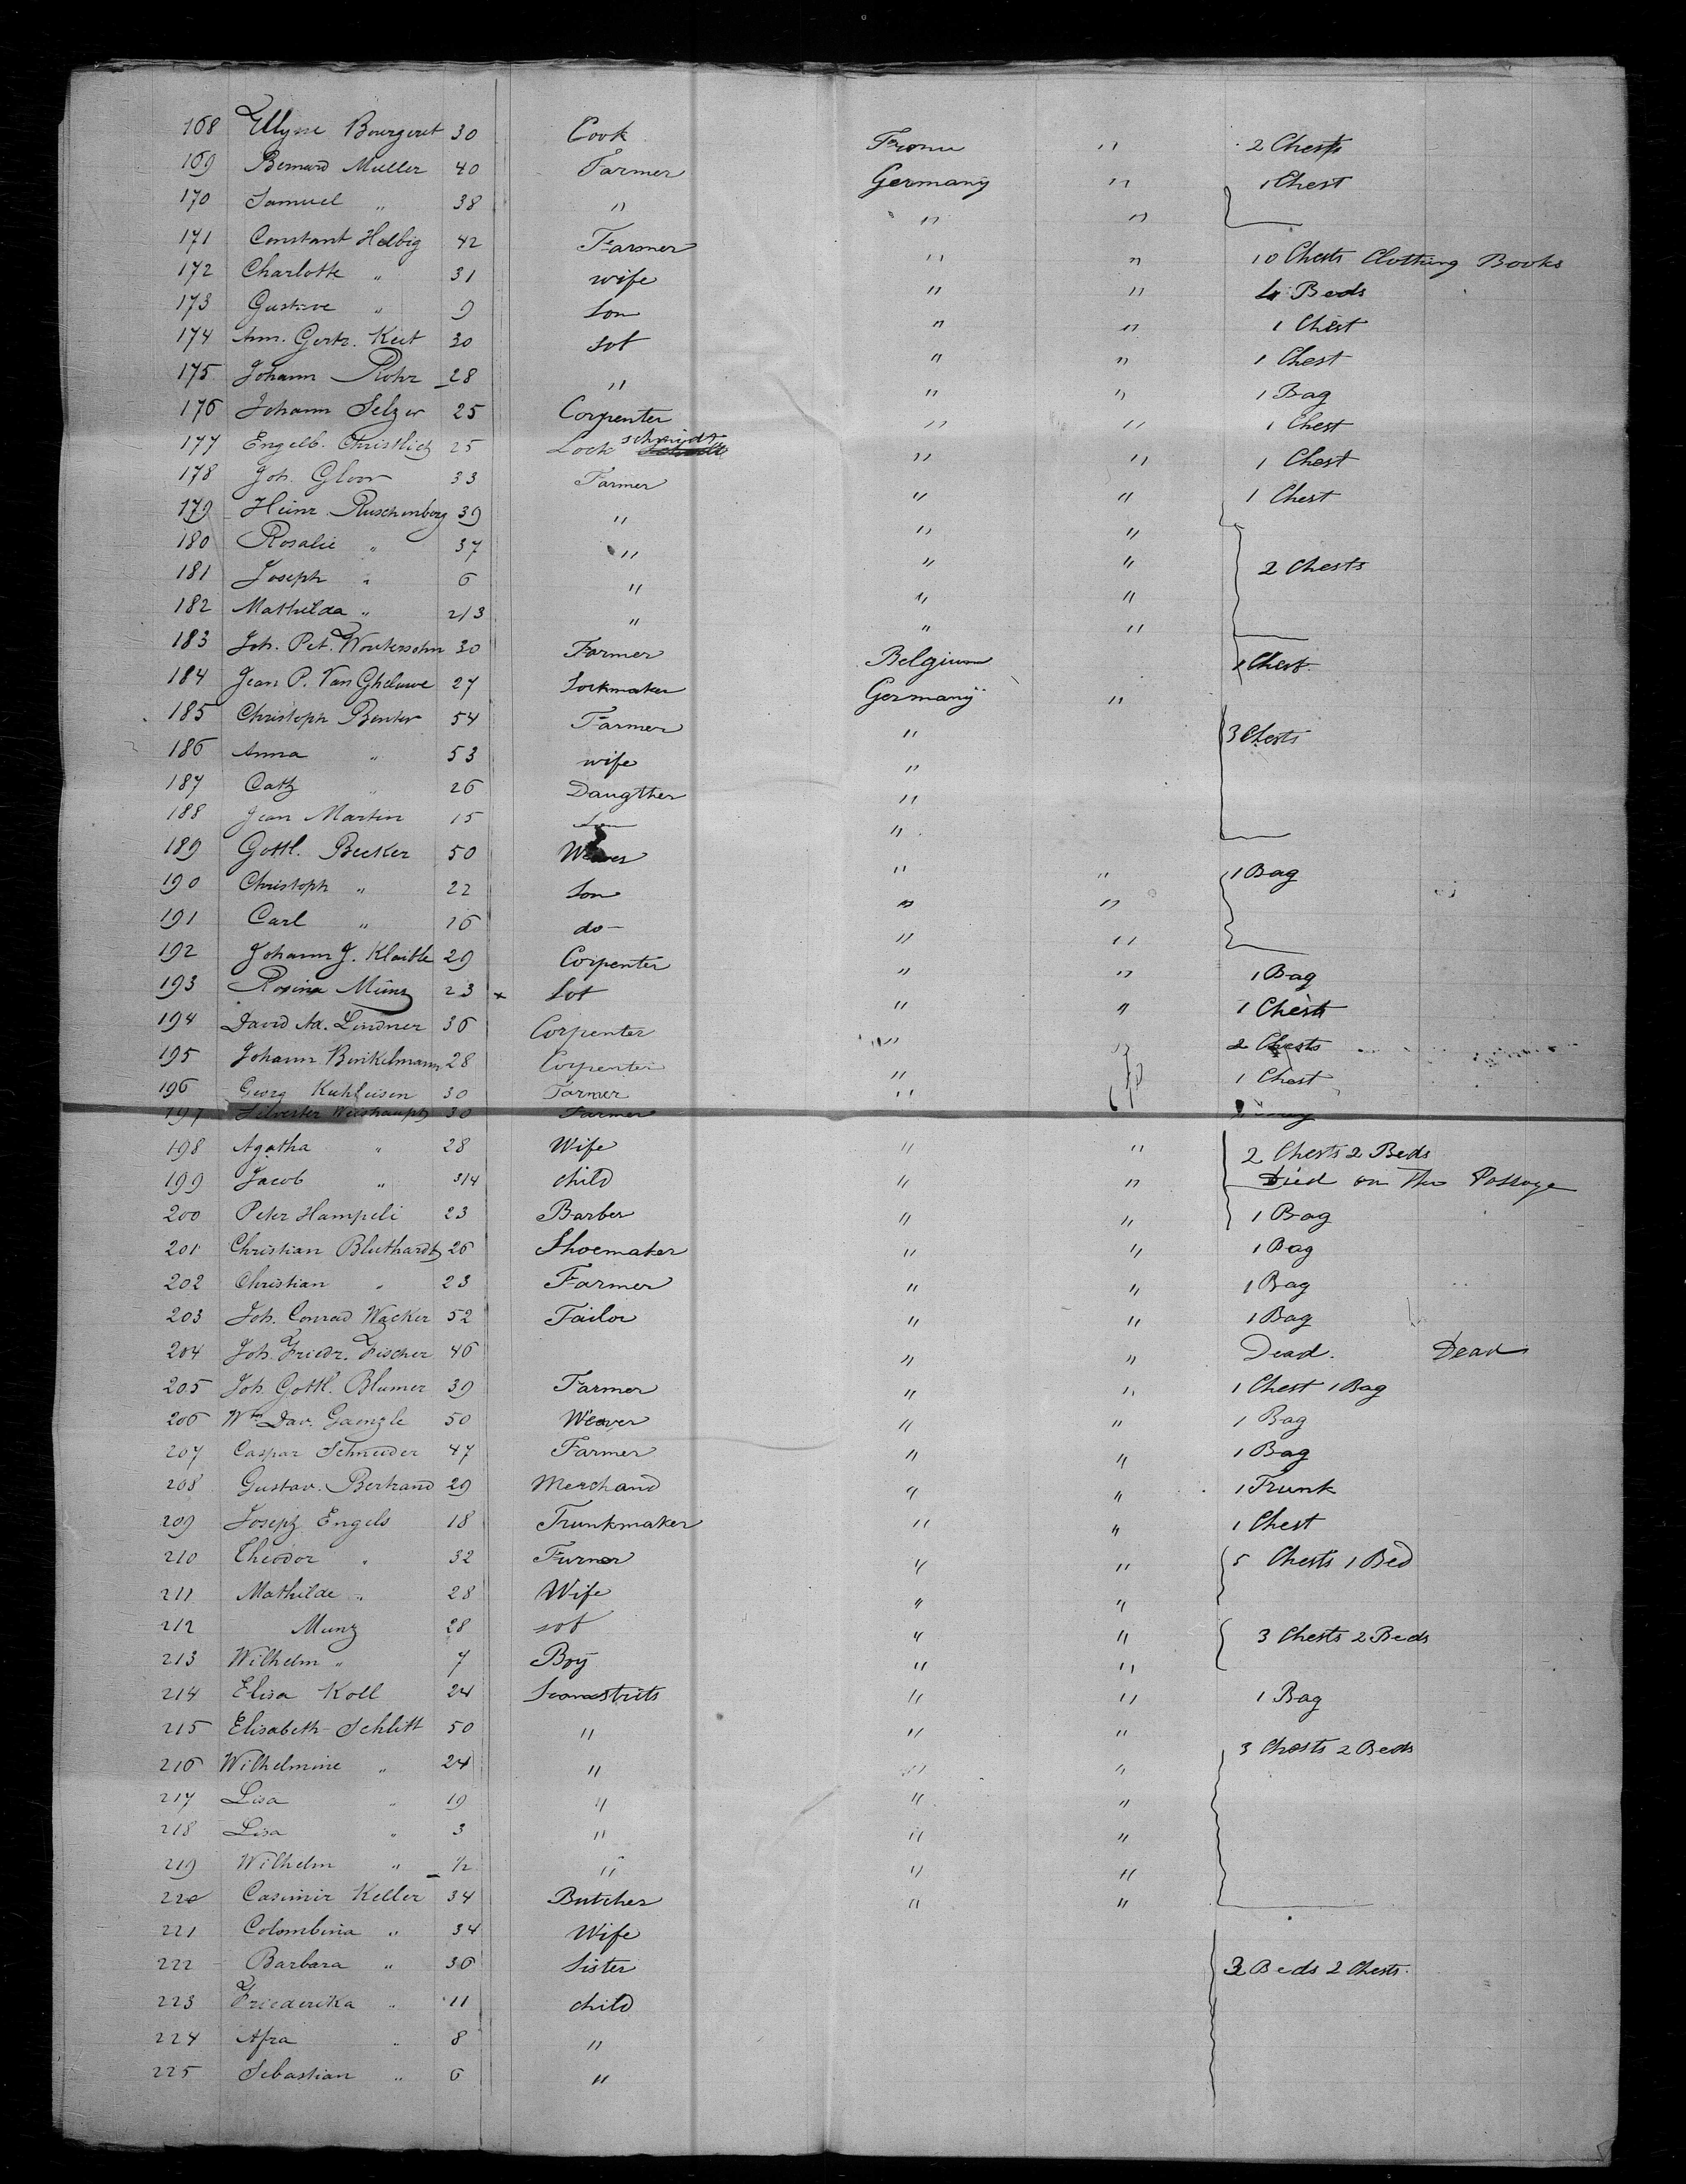 168 Ullysse Bourgeret 30 Cook Franu " 2 Chests
169 Bernard Muller 40 Farmer Germany " 1 Chest
170 Samuel " 38 " " "
171 Constant Helbig 42 Farmer " " 10 Chests Clothing Books
172 Charlotte " 31 wife " " 4 Beds
173 Gustave " 9 Son " " 1 Chest
174 Ann. Gertr. Keit 30 Sot " " 1 Chest
175 Johann Rohr 28 " " " 1 Bag
176 Johann Selzer 25 Corpenter " " 1 Chest
177 Engelb. Christlich 25 Lock schmidt " " 1 Chest
178 Joh. Gloor 33 Farmer " " 1 Chest
179 Heinr. Ruschenberg 39 " " "
180 Rosalie " 37 " " " 2 Chests
181 Joseph " 6 " " "
182 Mathilda " 2/3 " " "
183 Joh. Pet. Woutersohn 30 Farmer Belgium 1 Chest
184 Jean P. Van Gheluwe 27 Sockmaker Germany "
185 Christoph Benter 54 Farmer " 3 Chests
186 Anna " 53 wife "
187 Cath " 26 Daugther "
188 Jean Martin 15 Son "
189 Gottl. Becker 50 Weaver " " 1 Bag
190 Christoph " 22 Son " "
191 Carl " 16 do- " "
192 Johann J. Klaible 29 Corpenter " " 1 Bag
193 Rosina Münz 23 x Sot " " 1 Chest
194 David Ad. Lindner 36 Corpenter " " 2 Chests
195 Johann Binkelmann 28 Corpenter " 1 Chest
196 Georg Kuhleisen 30 Farmer "
197 Silvester Weishaupt 30 Farmer
198 Agatha " 28 Wife " " 2 Chests 2 Beds
199 Jacob " 3/4 child " " Died on The Passage
200 Peter Hampeli 23 Barber " " 1 Bag
201 Christian Bluthardt 26 Shoemaker " " 1 Bag
202 Christian " 23 Farmer " " 1 Bag
203 Joh. Conrad Wacker 52 Tailor " " 1 Bag
204 Joh. Friedr. Fischer 46 " " Dead. Dead
205 Joh. Gottl. Blumer 39 Farmer " " 1 Chest 1 Bag
206 Wm Dav. Gaenzle 50 Weaver " " 1 Bag
207 Caspar Schneider 47 Farmer " " 1 Bag
208 Gustav. Bertrand 29 Merchand " " 1 Trunk
209 Joseph Engels 18 Trunkmaker " " 1 Chest
210 Theodor " 32 Furner " " 5 Chests 1 Bed
211 Mathilde " 28 Wife " "
212 Munz 28 sot " " 3 Chests 2 Beds
213 Wilhelm " 7 Boy " "
214 Elisa Koll 24 Seamstrits " " 1 Bag
215 Elisabeth Schlitt 50 " " "
216 Wilhelmine " 24 " " " 3 Chests 2 Beds
217 Lisa " 19 " " "
218 Lisa " 3 " " "
219 Wilhelm " 1/2 " " "
220 Casimir Keller 34 Butcher " "
221 Colombina " 34 Wife
222 Barbara " 36 Sister 3 Beds 2 Chests.
223 Friederika " 11 child
224 Afra " 8 "
225 Sebastian " 6 "